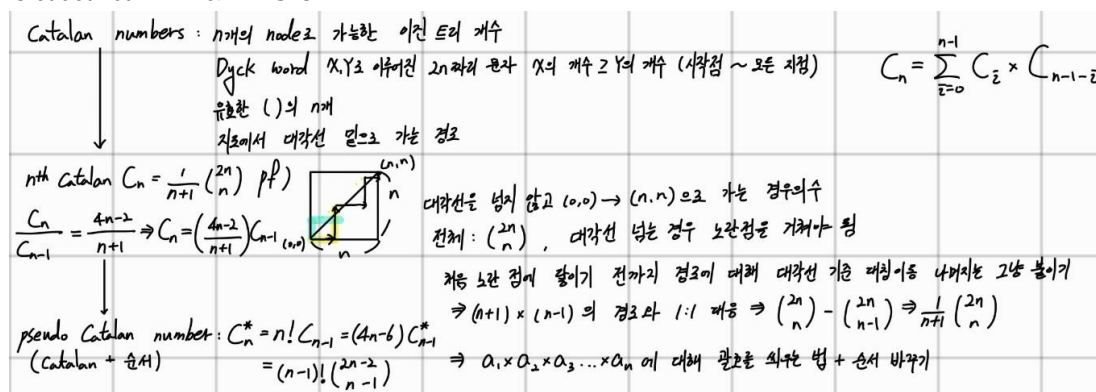 Catalan numbers : n개의 node로 가능한 이진 트리 개수
Dyck word X,Y로 이루어진 2n짜리 문자 X의 개수 ≥ Y의 개수 (시작점 ~ 모든 지점)
C_n = \sum_{i=0}^{n-1} C_i × C_{n-1-i}
유효한 ( )의 n개
지도에서 대각선 밑으로 가는 경로
nth Catalan C_n = \frac{1}{n+1} \binom{2n}{n} pf)
(n,n)
n
n
(0,0)
\frac{C_n}{C_{n-1}} = \frac{4n-2}{n+1} ⇒ C_n = \left(\frac{4n-2}{n+1}\right) C_{n-1}
대각선을 넘지 않고 (0,0) → (n,n) 으로 가는 경우의수
전체 : \binom{2n}{n} , 대각선 넘는 경우 노란점을 거쳐야 됨
처음 노란 점에 닿기 전까지 경로에 대해 대각선 기준 대칭이동 나머지는 그냥 붙이기
⇒ (n+1) × (n-1) 의 경로와 1:1 대응 ⇒ \binom{2n}{n} - \binom{2n}{n-1} ⇒ \frac{1}{n+1} \binom{2n}{n}
pseudo Catalan number : C_n^* = n! C_{n-1} = (4n-6) C_{n-1}^*
(Catalan + 순서) = (n-1)! \binom{2n-2}{n-1} ⇒ a_1 × a_2 × a_3 ... × a_n 에 대해 괄호를 씌우는 법 + 순서 바꾸기